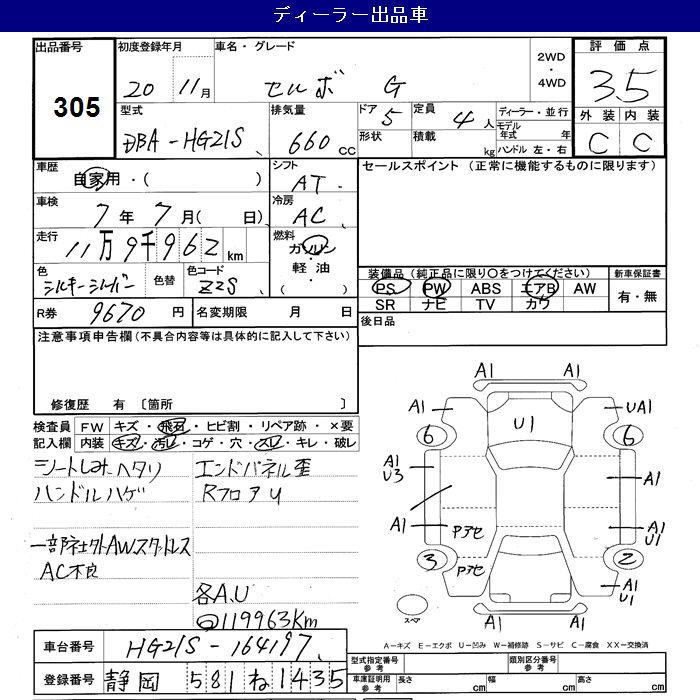 ディーラー出品車
出品番号 305
初度登録年月 20年 11月
車名・グレード セルボ G
2WD・4WD
評価点 3.5
外装 C 内装 C
型式 DBA-HG21S
排気量 660cc
ドア 5 形状
定員 4人 積載 kg
ディーラー・並行
モデル年式 年式
ハンドル 左・右
車歴 自家用・( )
シフト AT
セールスポイント (正常に機能するものに限ります)
車検 7年7月( 日)
冷房 AC
走行 11万9千962km
燃料 ガソリン・軽油・( )
色 シルキーシルバー 色替
色コード Z2S
装備品(純正品に限り○をつけてください)
新車保証書
PS PW ABS エアB AW
有・無
SR ナビ TV カワ
R券 9670円
名変期限 月 日
後日品
注意事項申告欄(不具合内容等は具体的に記入して下さい)
修復歴 有 〔箇所 〕
検査員記入欄
FW キズ・飛石・ヒビ割・リペア跡・×要
内装 キズ・汚レ・コゲ・穴・スレ・キレ・破レ
シートしみ、ヘタリ
ハンドルハゲ
エンドパネル歪
RフロアU
一部社外AWスタットレス
AC不良
各A、U
119963Km
A1 A1
A1 UA1
U1
6 6
A1 U3 A1
A1 A1 U1
Pアセ
3 Pアセ 2
A1 U1
スペア
A1 A1
A-キズ E-エクボ U-凹み W-補修跡 S-サビ C-腐食 XX-交換済
車台番号 HG21S-164197
登録番号 静岡 581 ね 1435
型式指定番号 参考
類別区分番号 参考
車庫証明用 参考 長さ cm 幅 cm 高さ cm